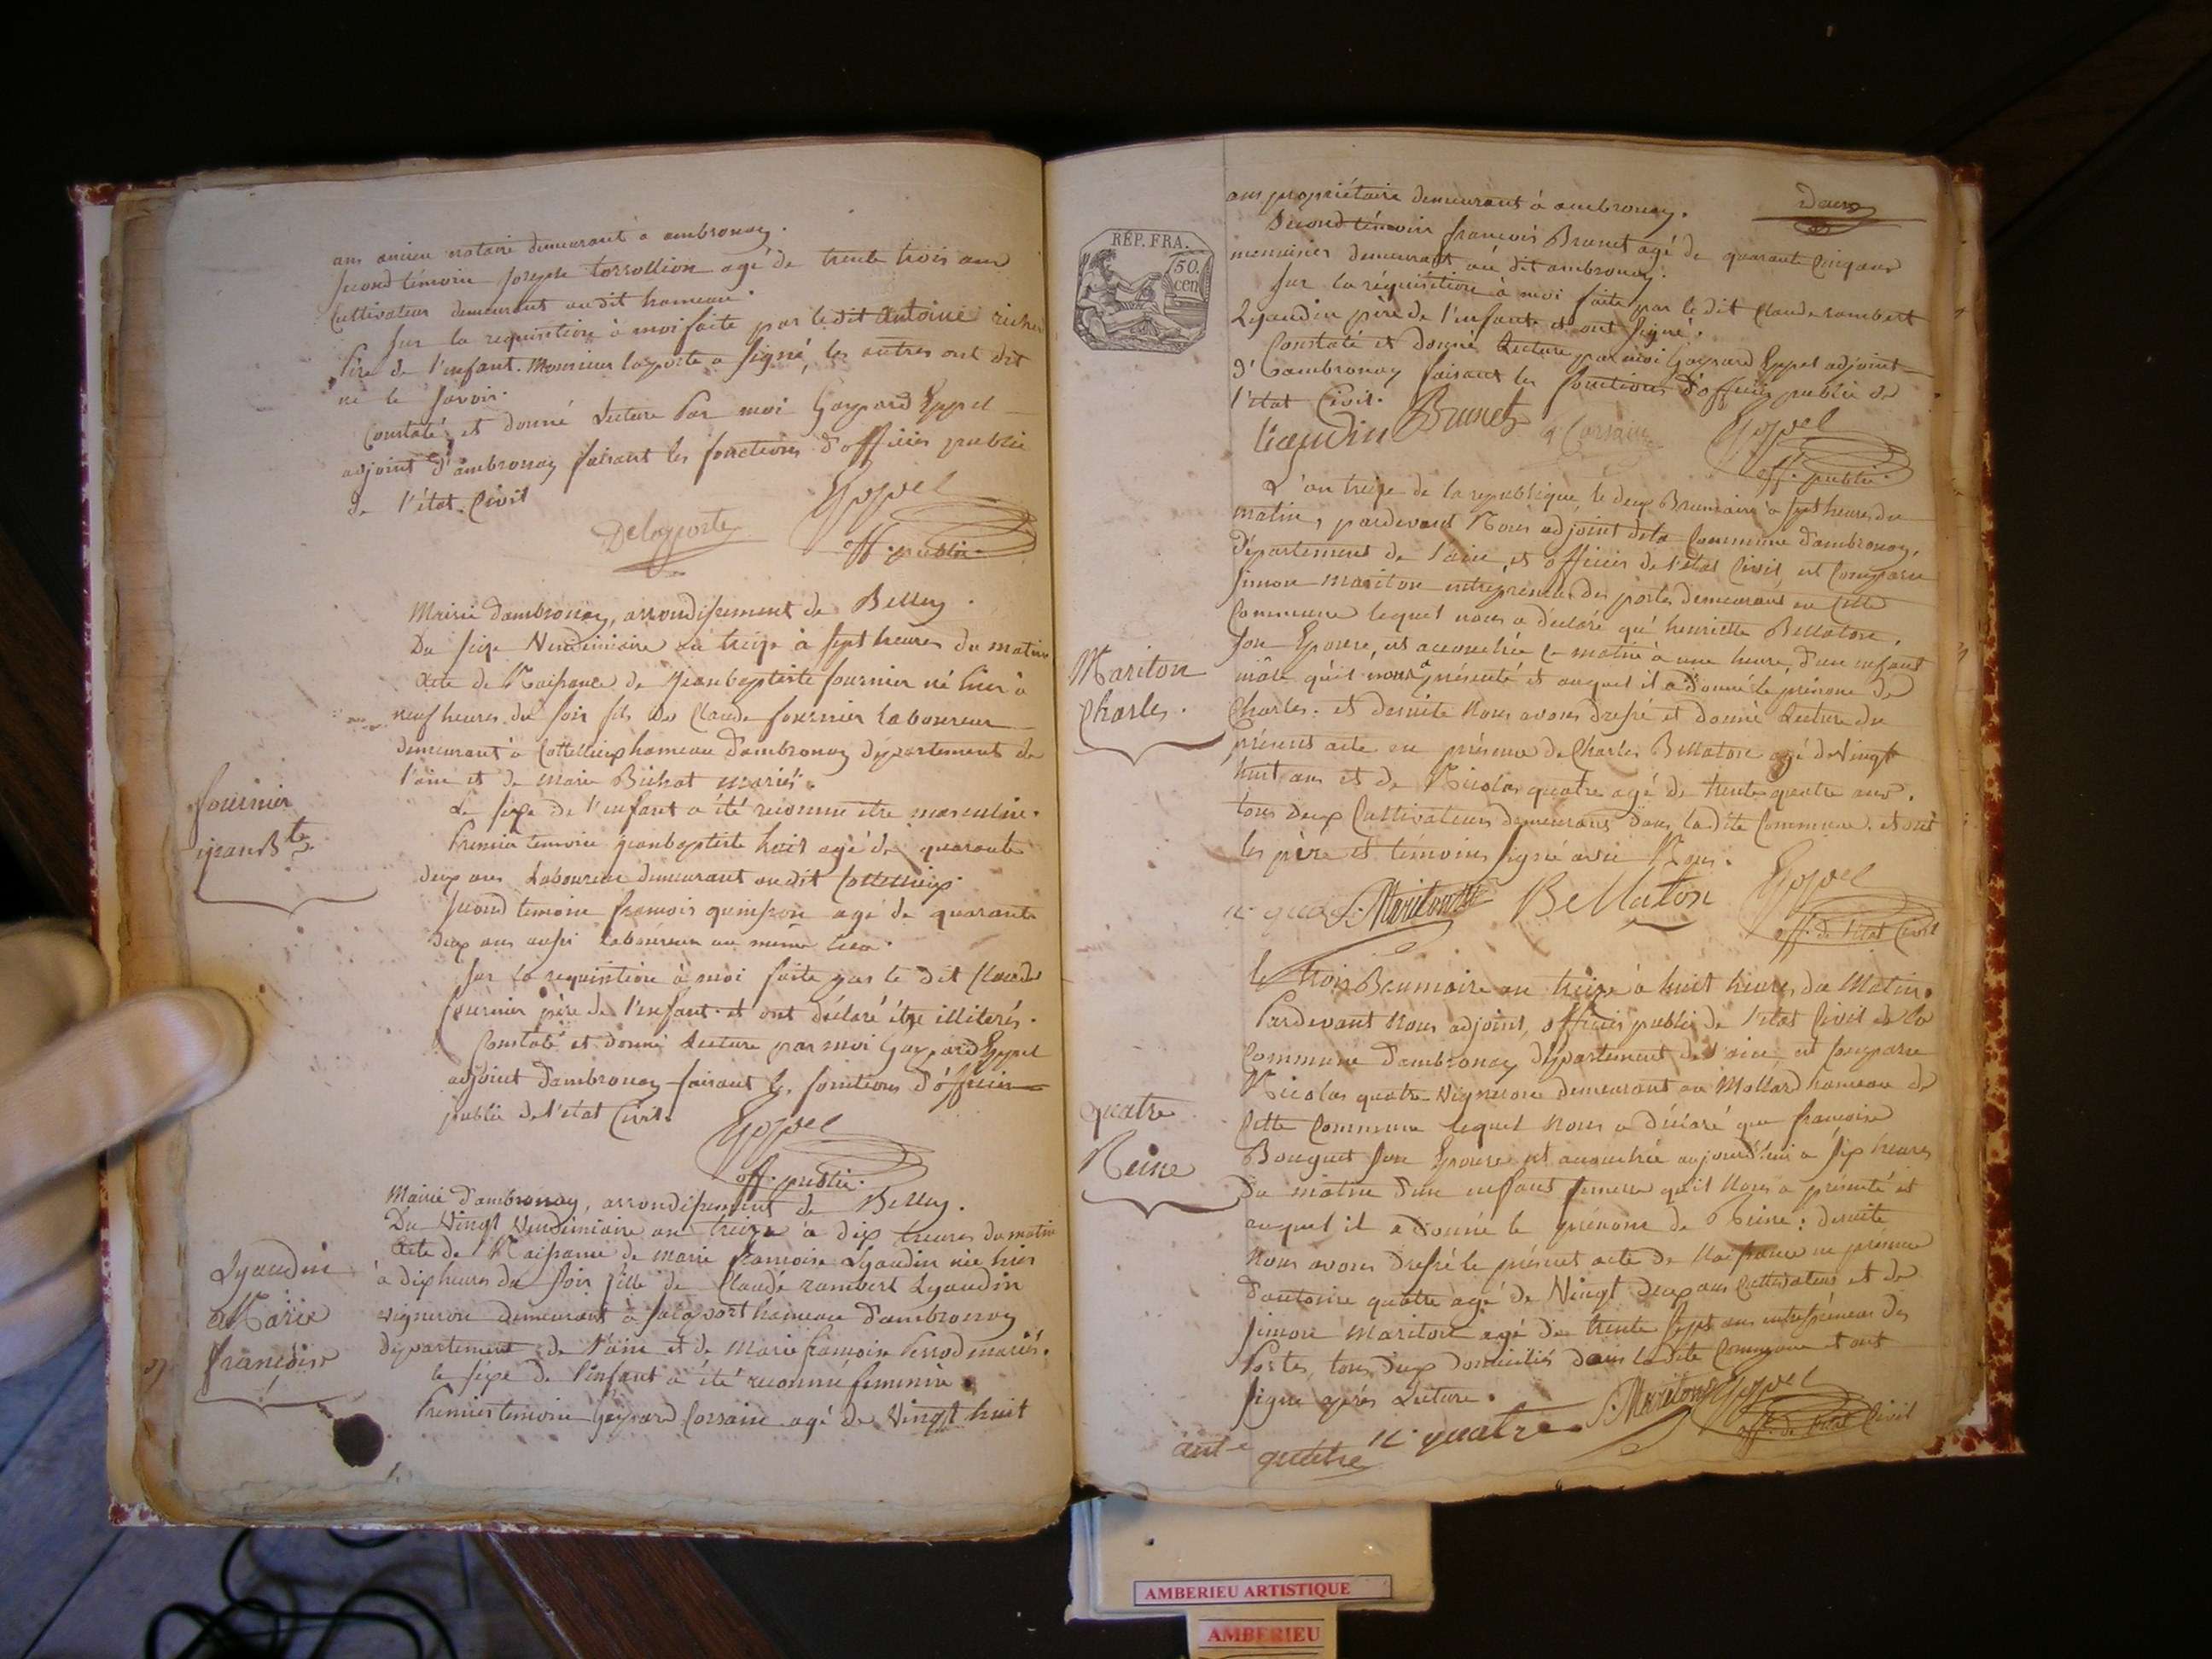 ans ancien notaire demeurant a ambronay.
second témoin joseph torrollion agé de trente trois ans
Cultivateur demeurant audit hameau.
Sur la requisition à moi faite par le dit Antoine richer
Père de l'enfant. Monsieur laporte a signé, les autres ont dit
ne le savoir.
Constaté et donné Lecture Par moi Gaspard Eppel
adjoint d'ambronay faisant les fonctions d'officier public
de l'état Civil
Delaporte
Eppel
off. public.
Mairie d'ambronay, arrondissement de Belley.
Du seize Vendémiaire an treize à sept heures du matin
Acte de Naissance de jeanbaptiste fournier né hier à
neuf heures du soir fils de Claude fournier laboureur
demeurant à hameau d'ambronay département de
l'ain et de marie Bichat mariés.
Le sexe de l'enfant a été reconnu etre masculin.
Premier temoin jeanbaptiste huit agé de quarante
deux ans Laboureur demeurant audit
second temoin françois quinson agé de quarante
deux ans aussi laboureur au même lieu.
Sur la requisition à moi faite par le dit Claude
fournier père de l'enfant. et ont déclaré être illiterés.
Constaté et donné Lecture par moi Gaspard Eppel
adjoint d'ambronay faisant les fonctions d'officier
public de l'etat Civil.
Eppel
off. public.
fournier
jean Bte
Mairie d'ambronay, arrondissement de Belley.
Du Vingt Vendémiaire an treize à dix heures du matin
Acte de Naissance de marie françoise Lyaudin née hier
à dix heures du soir fille de Claude rambert Lyaudin
vigneron demeurant à hameau d'ambronay
département de l'ain et de Marie françoise Perrod mariés.
le sexe de l'enfant a été reconnu feminin.
Premier temoin Gaspard Corsain agé de Vingt huit
Lyaudin
Marie
françoise
ans propriétaire demeurant à ambronay.
Second témoin françois Brunet agé de quarante cinq ans
menuisier demeurant au dit ambronay.
Sur la réquisition à moi faite par le dit Claude rambert
Lyaudin père de l'enfant et ont signé.
Constaté et donné Lecture par moi Gaspard Eppel adjoint
d'ambronay faisant les fonctions d'officier public de
l'état Civil.
liaudin Brunet g Corsain Eppel
off. public.
RÉP. FRA.
50.
cen
L'an treize de la republique le deux Brumaire à sept heures du
matin, pardevant Nous adjoint de la Commune d'ambronay,
département de l'ain, et officier de l'état Civil, est Comparu
simon mariton entrepreneur des postes demeurant en cette
Commune lequel nous a déclaré qu'henriette Bellaton,
son Epouse, est accouchée ce matin à une heure, d'un enfant
mâle qu'il nous a présenté et auquel il a donné le prénom de
Charles. et desuite Nous avons dressé et donné Lecture du
présent acte en présence de Charles Bellaton agé de Vingt
huit ans et de Nicolas quatre agé de trente quatre ans,
tous deux Cultivateurs demeurans dans ladite Commune. et ont
les père et témoins signé avec Nous.
S. Mariton Bellaton Eppel
off. de l'état Civil
Mariton
Charles.
le trois Brumaire an treize à huit heures du Matin.
Pardevant Nous adjoint, officier public de l'etat Civil de la
Commune d'ambronay département de l'ain, est Comparu
Nicolas quatre Vigneron demeurant au Mollard hameau de
Cette Commune lequel Nous a déclaré que françoise
Bouguet son Epouse est accouchée aujourd'hui à six heures
du matin d'un enfant femelle qu'il Nous a présenté et
auquel il a donné le prénom de Reine: desuite
Nous avons dressé le présent acte de Naissance en présence
d'antoine quatre agé de Vingt deux ans Cultivateur et de
simon mariton agé de trente sept ans entrepreneur des
Postes, tous deux domiciliés dans ladite Commune et ont
signé après Lecture.
S. Mariton Eppel
off. de l'état Civil
ant quatre n quatre
quatre
Reine
AMBERIEU ARTISTIQUE
AMBERIEU